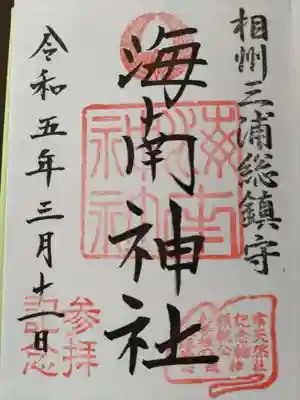 相州三浦総鎮守
海南神社
令和五年三月十二日
海南神社
参拝
記念